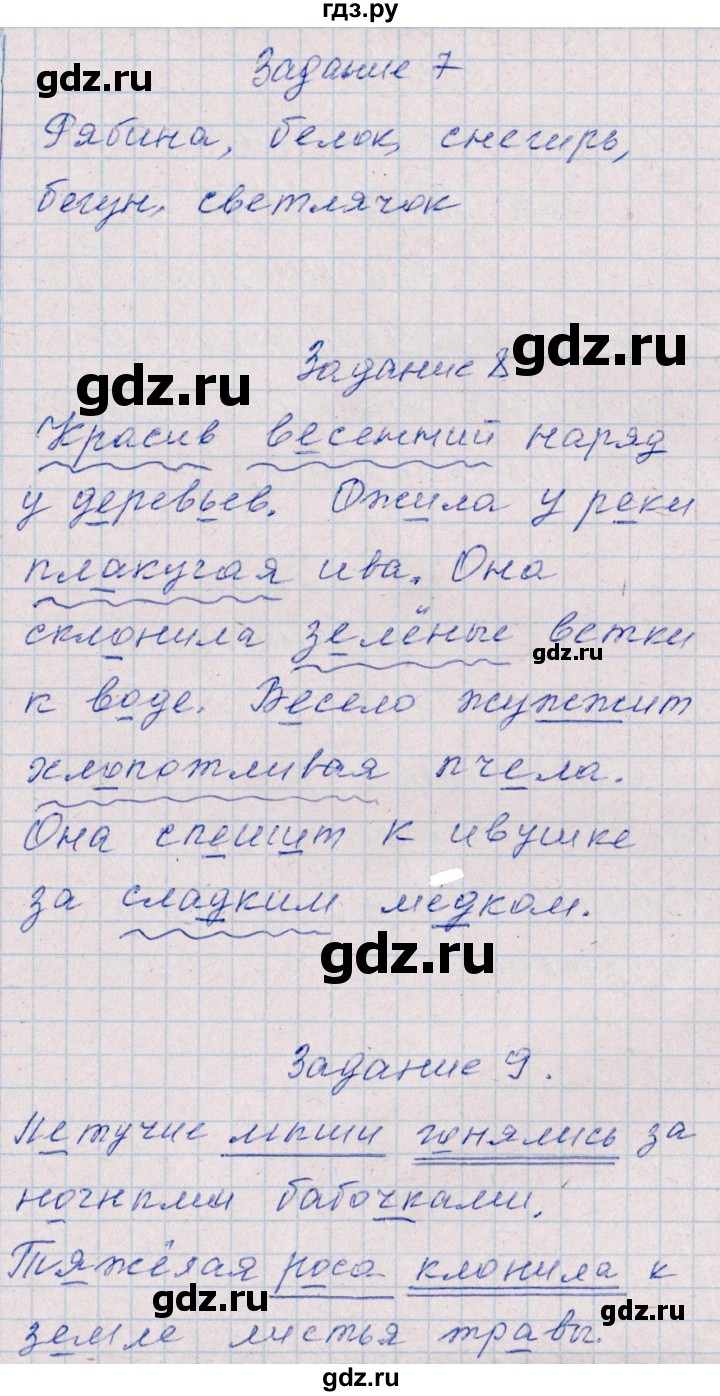 гдз.ру
gdz.ru
Задание 7
Рябина, белок, снегирь,
бегун, светлячок
gdz.ru
gdz.ru
Задание 8
Красив весенний наряд
у деревьев. Ожила у реки
плакучая ива. Она
склонила зелёные ветки
gdz.ru
к воде. Весело жужжит
хлопотливая пчела.
Она спешит к ивушке
за сладким медком.
gdz.ru
Задание 9.
Летучие мыши гонялись за
ночными бабочками.
Тяжёлая роса клонила к
gdz.ru
gdz.ru
земле листья травы.
gdz.ru